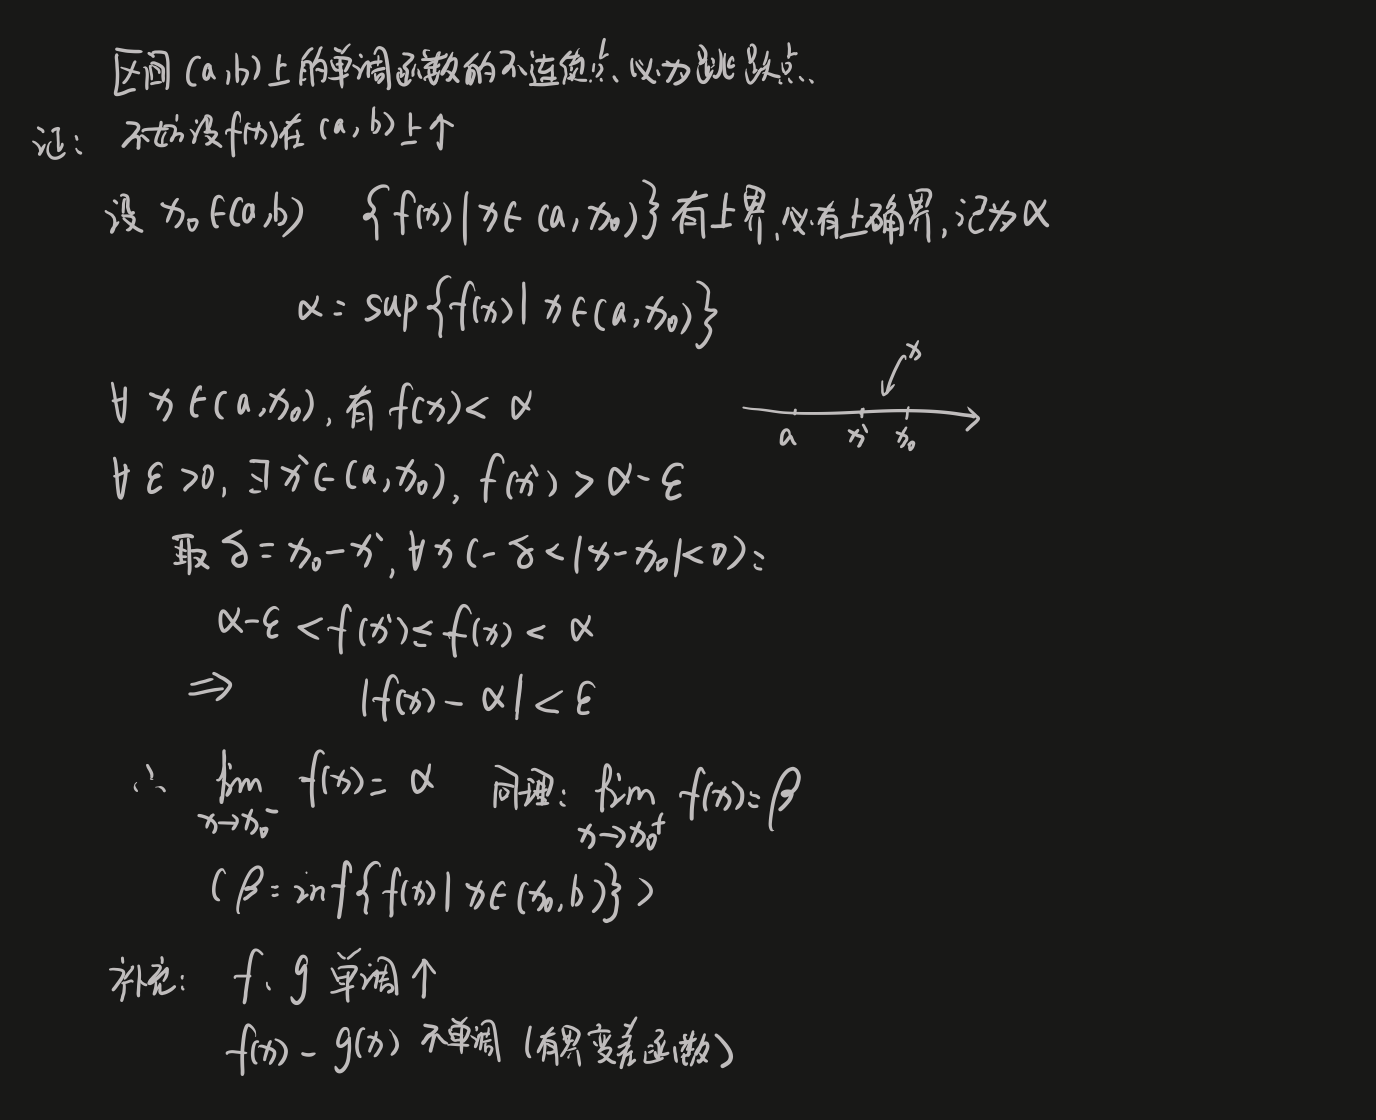 区间(a,b)上的单调函数的不连续点、必为跳跃点、
证: 不妨设f(x)在(a,b)上↑
设 x₀∈(a,b) {f(x)|x∈(a,x₀)}有上界,必有上确界,记为α
α = sup{f(x)| x∈(a,x₀)}
∀ x∈(a,x₀), 有 f(x)< α
x
a x' x₀
∀ ε >0, ∃x'∈(a,x₀), f(x') > α-ε
取 δ = x₀-x', ∀x (-δ<|x-x₀|<0):
α-ε < f(x') ≤ f(x) < α
⇒ |f(x) - α| < ε
∴ lim_{x→x₀⁻} f(x) = α 同理: lim_{x→x₀⁺} f(x) = β
(β = inf{f(x)| x∈(x₀,b)})
补充: f、g 单调↑
f(x) - g(x) 不单调 (有界变差函数)